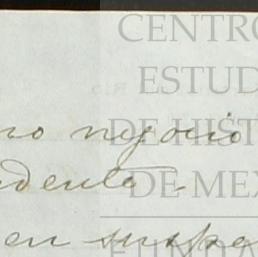 CENTRO
ESTUD
no negocio
DE HIST
dente.
DE MEX
en suspe
FUNDA